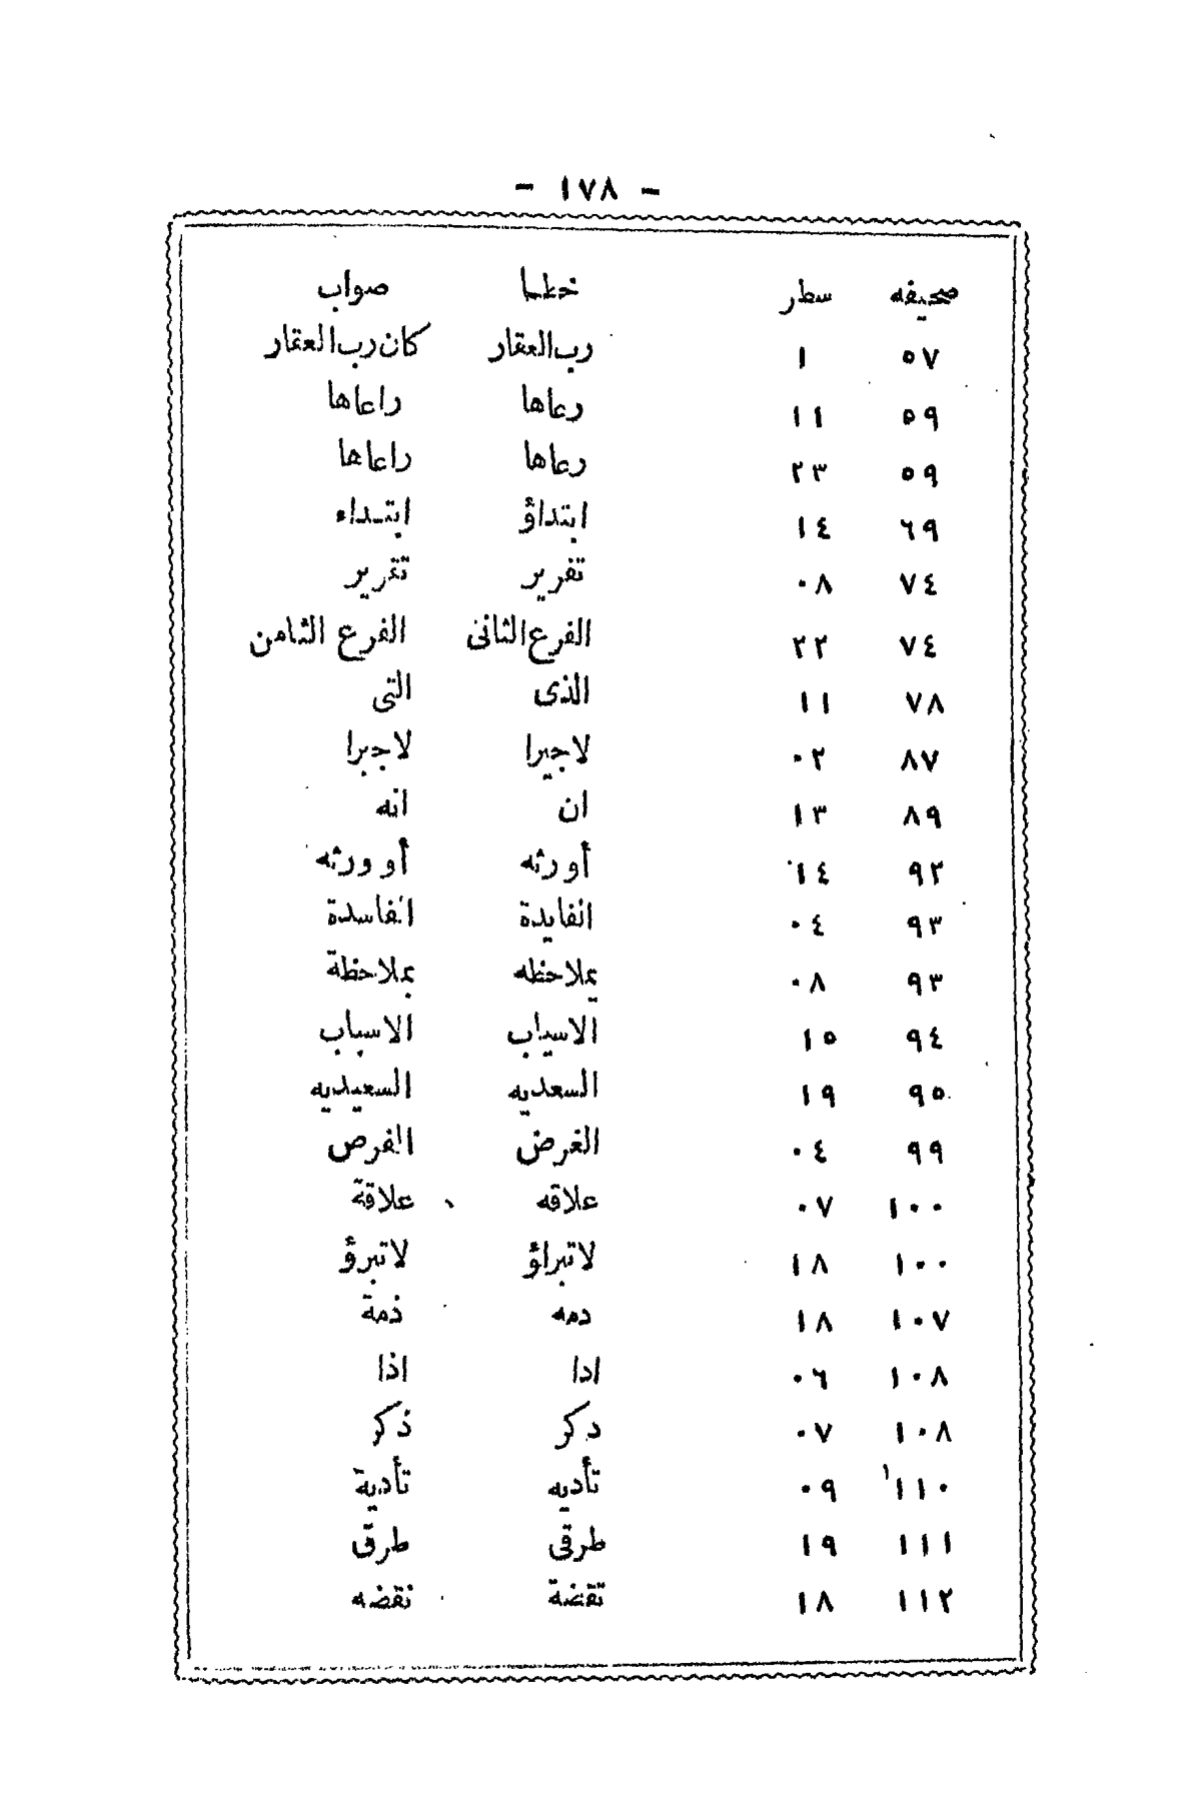 - ١٧٨ -
صحيفه سطر خطا صواب
٥٧ ١ رب العقار كان رب العقار
٥٩ ١١ رعاها راعاها
٥٩ ٢٣ رعاها راعاها
٦٩ ١٤ ابتداؤ ابتداء
٧٤ ٠٨ تفرير تقرير
٧٤ ٢٢ الفرع الثانى الفرع الثامن
٧٨ ١١ الذى التى
٨٧ ٠٢ لاجيرا لاجبرا
٨٩ ١٣ ان انه
٩٢ ١٤ أو رثه أو ورثه
٩٣ ٠٤ الفايدة الفاسدة
٩٣ ٠٨ يملاحظه بملاحظة
٩٤ ١٥ الاسياب الاسباب
٩٥ ١٩ السعديه السعيديه
٩٩ ٠٤ الغرض الفرص
١٠٠ ٠٧ علاقه علاقة
١٠٠ ١٨ لاتبراؤ لاتبرؤ
١٠٧ ١٨ دمه ذمة
١٠٨ ٠٦ ادا اذا
١٠٨ ٠٧ دكر ذكر
١١٠ ٠٩ تأديه تأدية
١١١ ١٩ طرقى طرق
١١٢ ١٨ تقضة نقضه